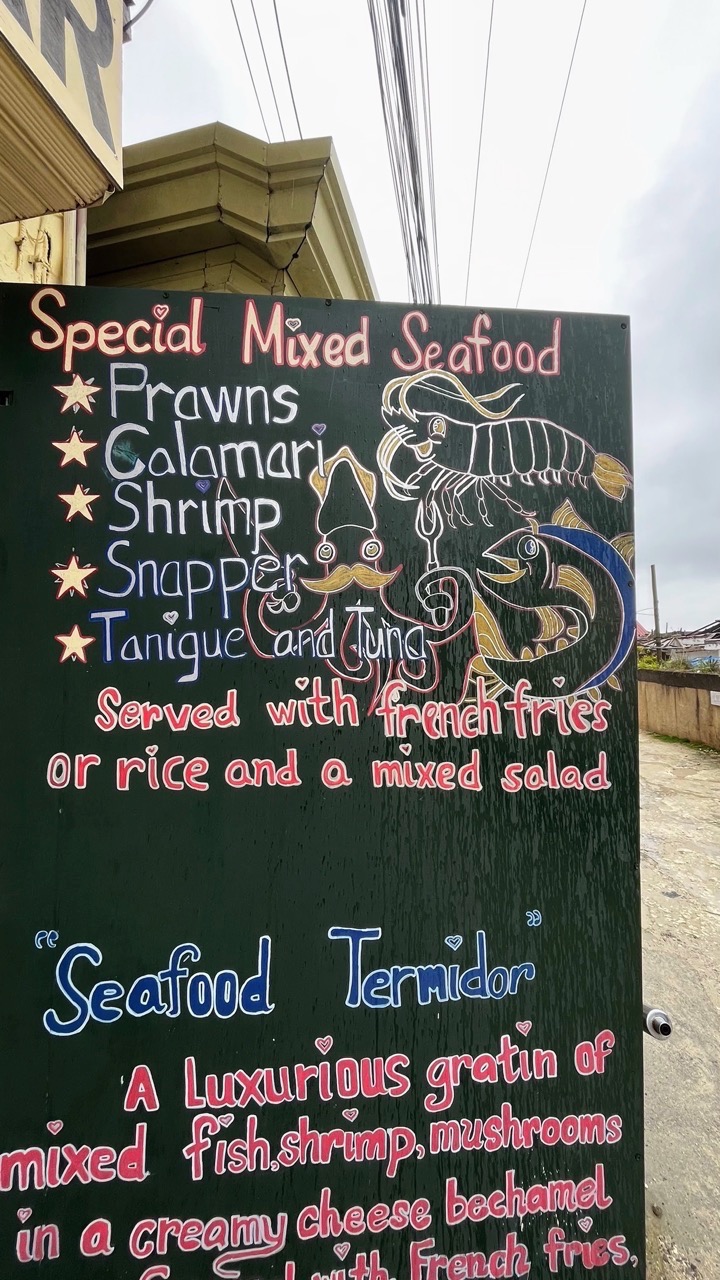 R
Special Mixed Seafood
Prawns
Calamari
Shrimp
Snapper
Tanigue and Tuna
Served with french fries
or rice and a mixed salad
"Seafood Termidor"
A Luxurious gratin of
mixed fish, shrimp, mushrooms
in a creamy cheese bechamel
with French fries,